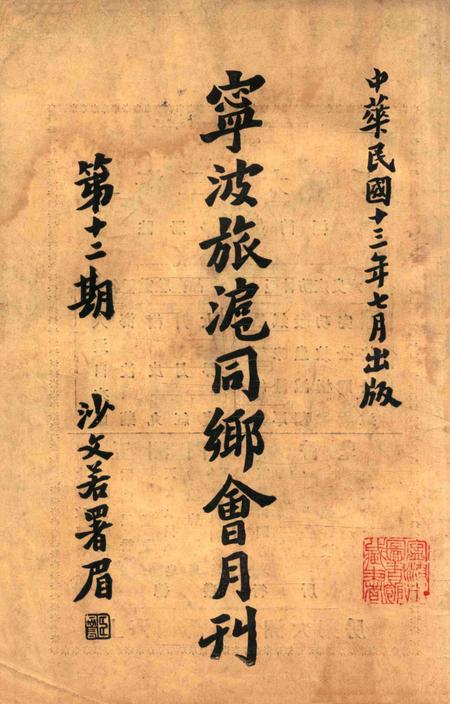 中華民國十三年七月出版
寧波旅滬同鄉會月刊
第十二期
沙文若署眉